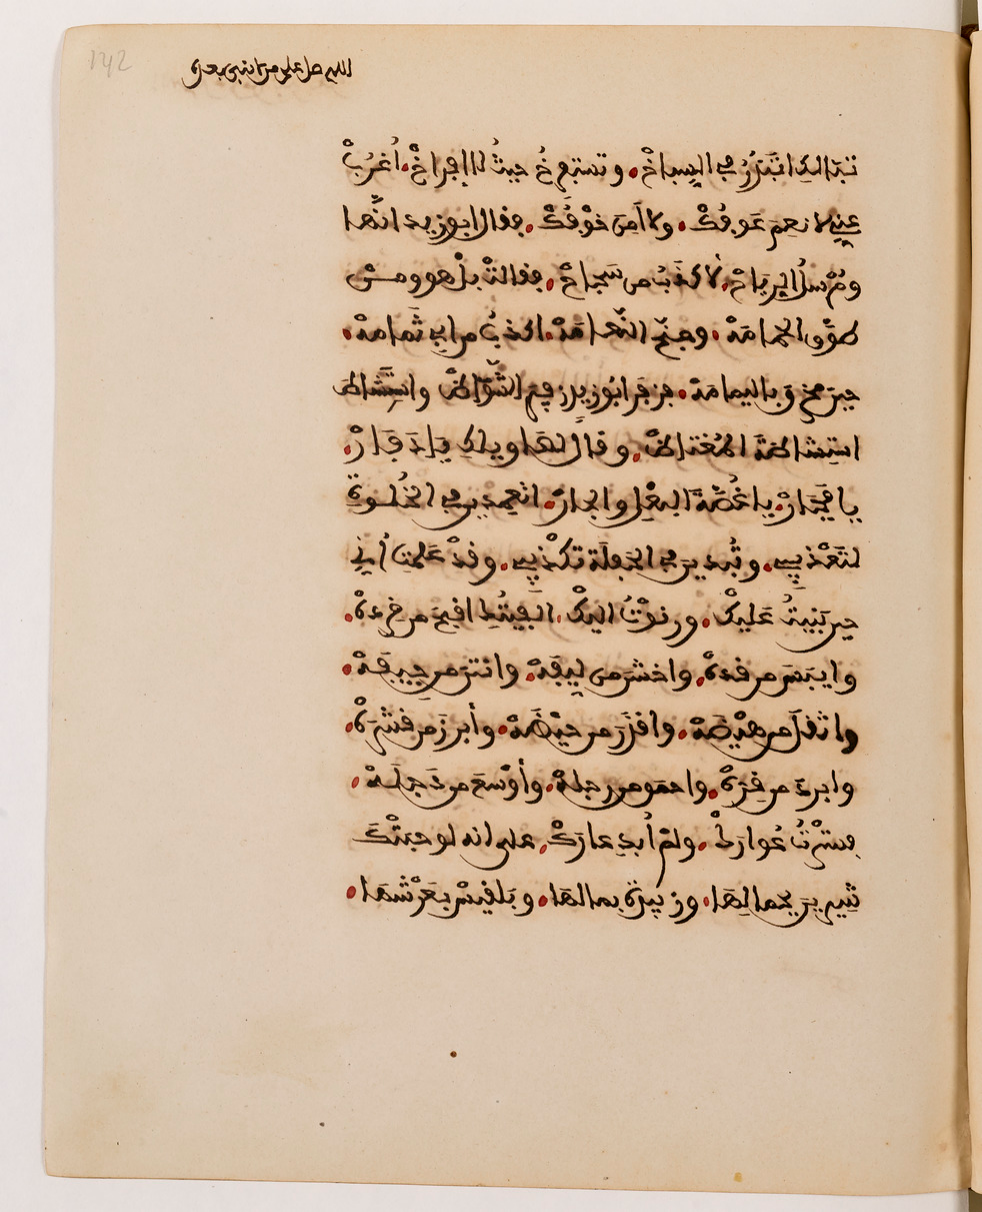 142
اللهم صل على من لا نبي بعده
تبا لك اتبذر في السباخ. وتستفرخ حيث لا إفراخ. أغرب
عني لا نعم عوفك. ولا أمن خوفك. فقال أبو زيد انها
ومرسل الرياح. لأكذب من سجاح. فقالت بل هو ومن
طوق الحمامة. وجنح النعامة. اكذب من ابي ثمامة.
حين مخرق باليمامة. فزفر أبو زيد زفير الشواظ واستشاط
استشاطة المغتاظ. وقال لها ويلك يا دفار.
يا فجار. يا غصة البعل والجار. اتعمدين في الخلوة
لتعذيبي. وتبدين في الحفلة تكذيبي. وقد علمت أني
حين بنيت عليك. ورنوت اليك. الفيتك اقبح من قردة.
وايبس من قدة. واخشن من ليفة. وانتن من جيفة.
واثقل من هيضة. واقذر من حيضة. وأبرز من قشرة.
وابرد من قرة. واحمق من رجلة. وأوسع من دجلة.
فسترت عوارك. ولم أبد عارك. على انه لو حبتك
شيرين بجمالها. وزبيدة بمالها. وبلقيس بعرشها.